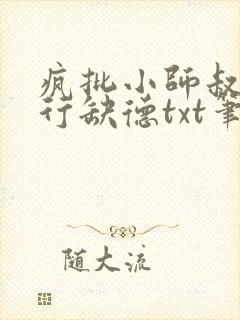 疯批小师叔
行缺德txt笔
随大流